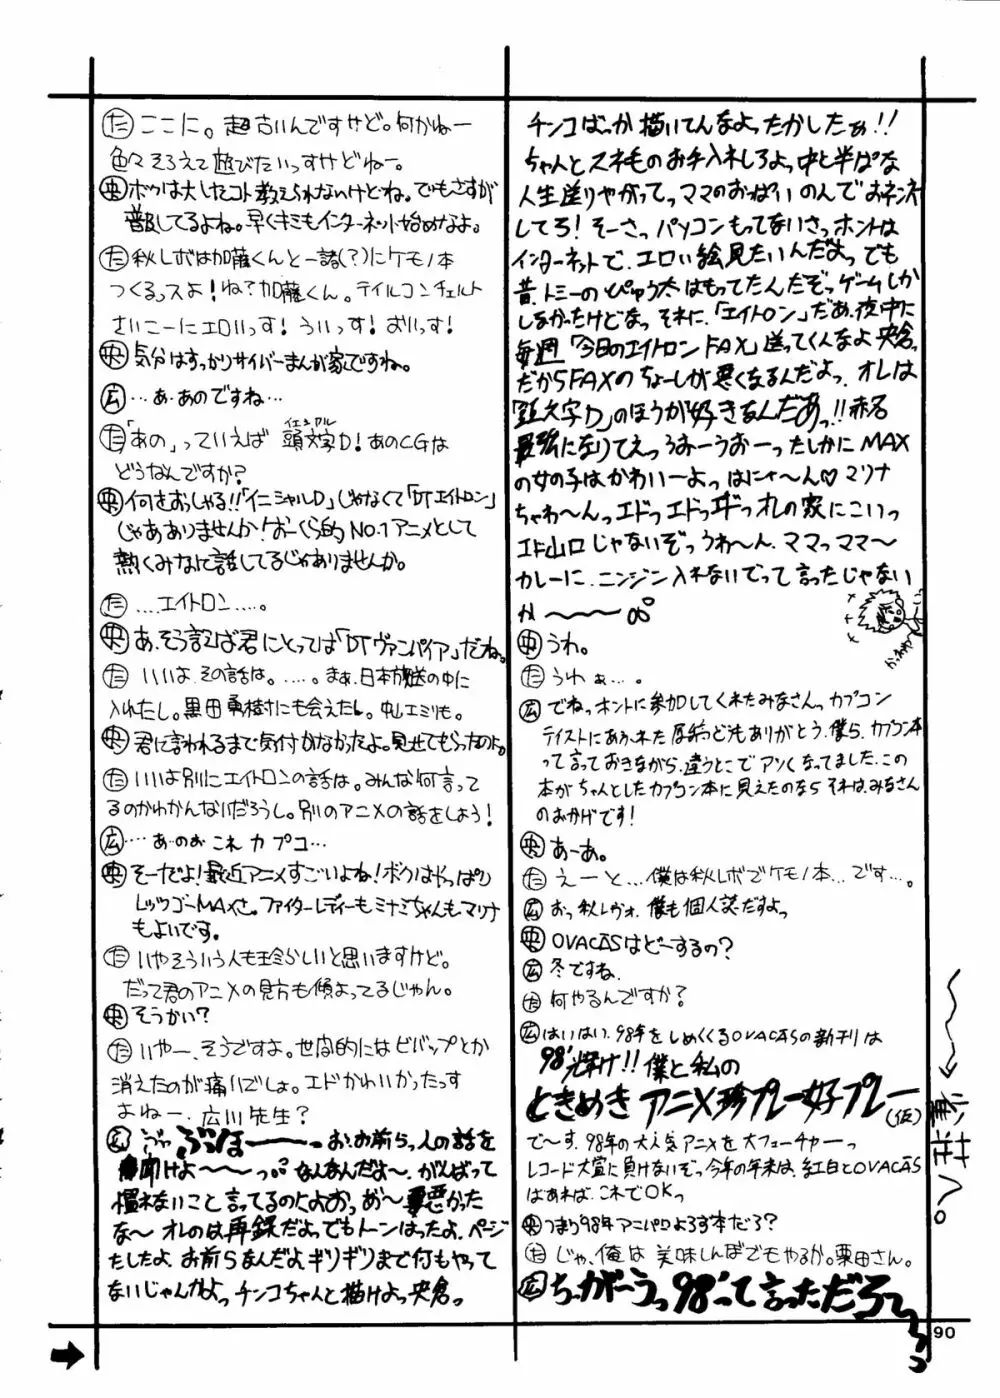 た ここに。超古いんですけど。何かねー
色々そろえて遊びたいっすけどねー。
央 ボクは大したコト教えられないけどね。でもさすが
普及してるよね。早くキミもインターネット始めなよ。
た 秋レボは加藤くんと一諸(？)にケモノ本
つくるっスよ！ね？加藤くん。テイルコンチェルト
さいこーにエロいっす！ういっす！おいっす！
央 気分はすっかりサイバーまんが家ですね。
広 …あ・あのですね…
た「あの」っていえば 頭文字D！あのCGは
イニシャル
どうなんですか？
央 何をおっしゃる!!「イニシャルD」じゃなくて「DTエイトロン」
じゃありませんか！おーくら的NO.1アニメとして
熱くみなに話してるじゃありませんか。
た …エイトロン…。
央 あ、そう言えば君にとっては「DTヴァンパイア」だね。
た いいよ、その話は。……。まぁ、日本放送の中に
入れたし。黒田勇樹にも会えたし。中山エミリも。
央 君に言われるまで気付かなかったよ。見せてもらったのに。
た いいよ別にエイトロンの話は。みんな何言って
るのかわかんないだろうし。別のアニメの話をしよう！
広 …あーのぉ これ カプコ…
央 そーだよ！最近アニメすごいよね！ボクはやっぱり
レッツゴーMAXさ。ファイターレディーもミナミちゃんもマリナ
もよいです。
た いやそういう人も珍らしいと思いますけど。
だって君のアニメの見方も傾よってるじゃん。
央 そうかい？
た いやー、そうですよ。世間的にはビバップとか
消えたのが痛いでしょ。エドかわいかったっす
よねー、広川先生？
広 ぶっほーーー っ お、お前ら、人の話を
聞けよ〜〜っ なんなんだよ〜、がんばって
慣れないこと言ってるのによおっ あ〜悪かった
な〜 オレのは再録だよっでもトーンはったよ、ページ
たしたよ、お前らなんだよギリギリまで何もやって
ないじゃんかよっ チンコちゃんと描けよっ 央倉っ
チンコばっか描いてんなよったかしたぁ!!
ちゃんとスネ毛のお手入れしろよっ中と半ぱな
人生送りやがってっママのおっぱいのんでおネンネ
してろ！そーさっパソコンもってないさっホントは
インターネットで、エロい絵見たいんだよっでも
昔、トミーのぴゅう太はもってたんだぞっゲームしか
しなかったけどなっ それに、「エイトロン」だぁ、夜中に
毎週「今日のエイトロンFAX」送ってくんなよ央倉っ
だからFAXのちょーしが悪くなるんだよっ、オレは
「頭文字D」のほうが好きなんだあっ!!赤名
最強になりてえっ うおーうおーったしかにMAX
の女の子はかわいーよっはにゃ〜ん♡マリナ
ちゃわ〜んっエドっエドっエドっオレの家にこいっ
エド山口じゃないぞっうわ〜ん、ママっママ〜
カレーに、ニンジン入れないでって言ったじゃない
か〜〜〜
央 うわ。
た うわぁ…。
広 でねっホントに参加してくれたみなさんっカプコン
テイストにあふれた原稿どうもありがとう、僕ら、カプコン本
って言っておきながら、違うとこでアツくなってました。この
本がちゃんとしたカプコン本に見えたのならそれはみなさん
のおかげです！
央 あーあ。
た えーと…僕は秋レボでケモノ本…です…。
広 おっ秋レヴォ、僕も個人誌だすよっ
央 OVACASはどーするの？
広 冬ですね。
た 何やるんですか？
広 はいはい、98年をしめくくるOVACASの新刊は
98'輝け!!僕と私の
ときめき アニメ珍プレー好プレー(仮)
で〜す、98年の大人気アニメを大フューチャーっ
レコード大賞に負けないぞっ今年の年末は、紅白とOVACAS
はあれば、これでOKっ
央 つまり98年アニパロよろず本だろ？
た じゃ、俺は 美味しんぼでもやるか。栗田さん。
広 ちっがーうっ 98'って言っただろーっっっ
90